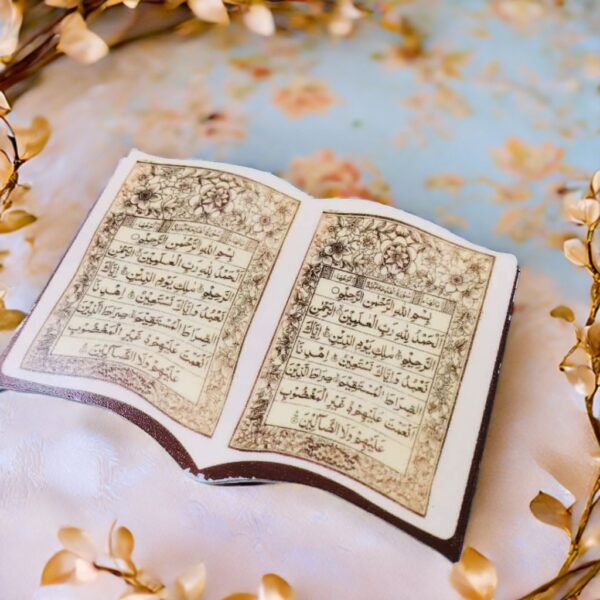 بِسْمِ اللهِ الرَّحْمٰنِ الرَّحِيْمِ
اَلْحَمْدُ لِلّٰهِ رَبِّ الْعٰلَمِيْنَ الرَّحْمٰنِ
الرَّحِيْمِ مٰلِكِ يَوْمِ الدِّيْنِ اِيَّاكَ
نَعْبُدُ وَاِيَّاكَ نَسْتَعِيْنُ اِهْدِنَا
الصِّرَاطَ الْمُسْتَقِيْمَ صِرَاطَ الَّذِيْنَ
اَنْعَمْتَ عَلَيْهِمْ غَيْرِ الْمَغْضُوْبِ
عَلَيْهِمْ وَلَا الضَّآلِّيْنَ
بِسْمِ اللهِ الرَّحْمٰنِ الرَّحِيْمِ
اَلْحَمْدُ لِلّٰهِ رَبِّ الْعٰلَمِيْنَ الرَّحْمٰنِ
الرَّحِيْمِ مٰلِكِ يَوْمِ الدِّيْنِ اِيَّاكَ
نَعْبُدُ وَاِيَّاكَ نَسْتَعِيْنُ اِهْدِنَا
الصِّرَاطَ الْمُسْتَقِيْمَ صِرَاطَ الَّذِيْنَ
اَنْعَمْتَ عَلَيْهِمْ غَيْرِ الْمَغْضُوْبِ
عَلَيْهِمْ وَلَا الضَّآلِّيْنَ